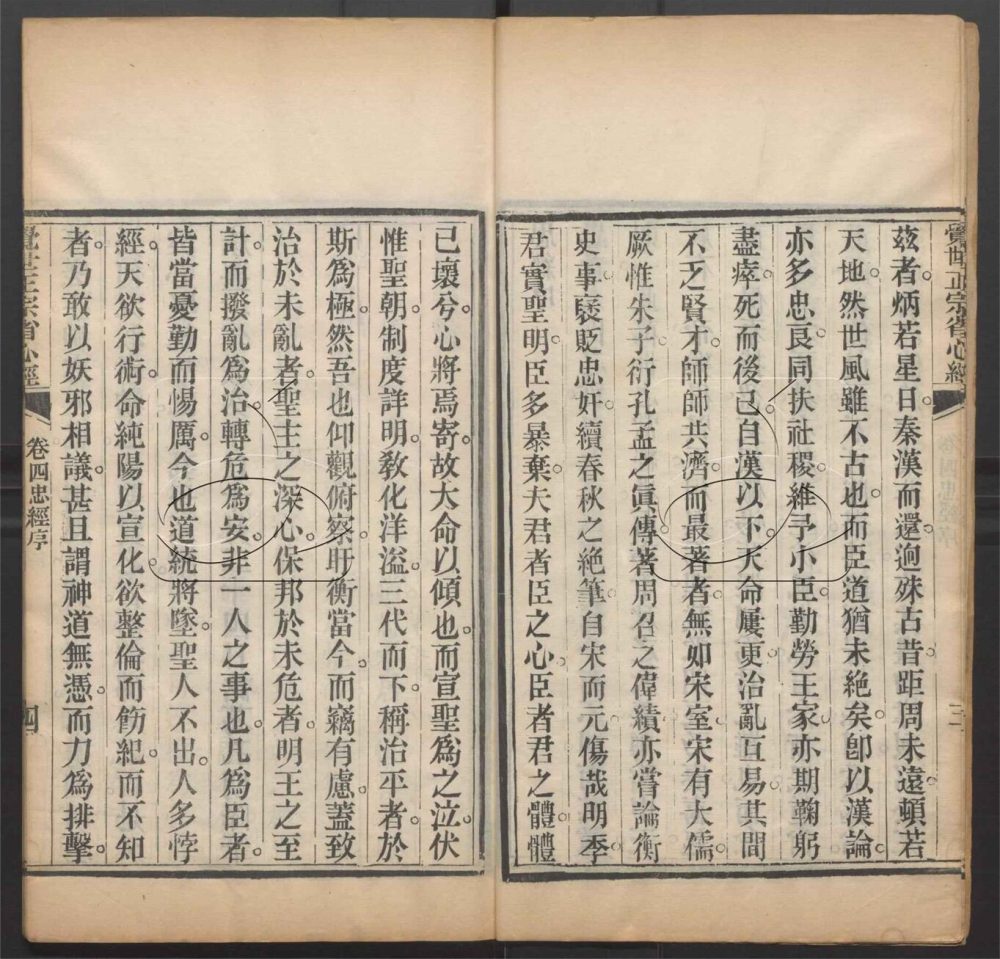 覺世正宗省心經
三
茲者。炳若星日。秦漢而還。迥殊古昔。距周未遠。頓若
天地。然世風雖不古也。而臣道猶未絕矣。卽以漢論。
亦多忠良。同扶社稷。維予小臣。勤勞王家。亦期鞠躬
盡瘁。死而後已。自漢以下。天命屢更。治亂互易。其間
不乏賢才。師師共濟。而最著者。無如宋室。宋有大儒。
厥惟朱子。衍孔孟之眞傳。著周召之偉績。亦嘗論衡
史事。褒貶忠奸。續春秋之絕筆。自宋而元。傷哉明季。
君實聖明。臣多暴棄。夫君者臣之心。臣者君之體。體
已壞兮。心將焉寄。故大命以傾也。而宣聖爲之泣。伏
惟聖朝。制度詳明。敎化洋溢。三代而下。稱治平者。於
斯爲極。然吾也仰觀俯察。盱衡當今。而竊有慮。蓋致
治於未亂者。聖主之深心。保邦於未危者。明王之至
計。而撥亂爲治。轉危爲安。非一人之事也。凡爲臣者。
皆當憂勤而惕厲。今也道統將墜。聖人不出。人多悖
經。天欲行術。命純陽以宣化。欲整倫而飭紀。而不知
者。乃敢以妖邪相議。甚且謂神道無憑。而力爲排擊。
覺世正宗省心經
卷四忠經序
四